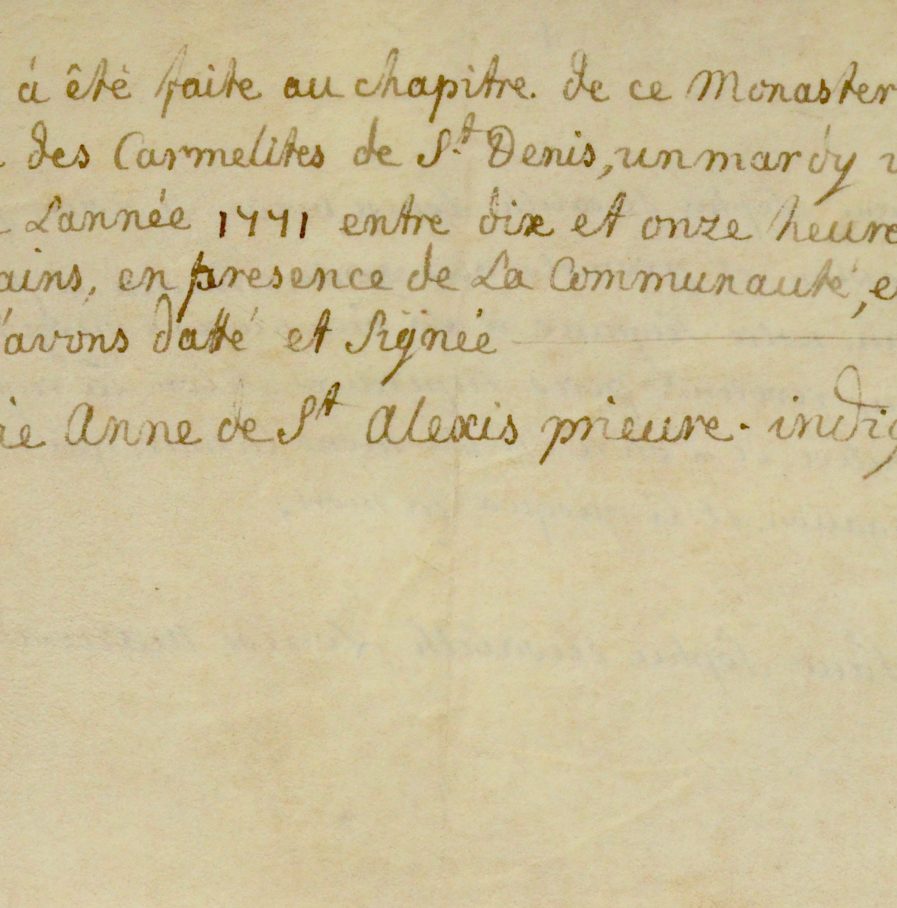 á êté faite au chapitre. de ce Monaster
des Carmelites de St Denis, un mardy
Lannée 1771 entre dix et onze heure
ains, en presence de La Communauté, e
avons datté et Signée
ie Anne de St Alexis prieure. indig